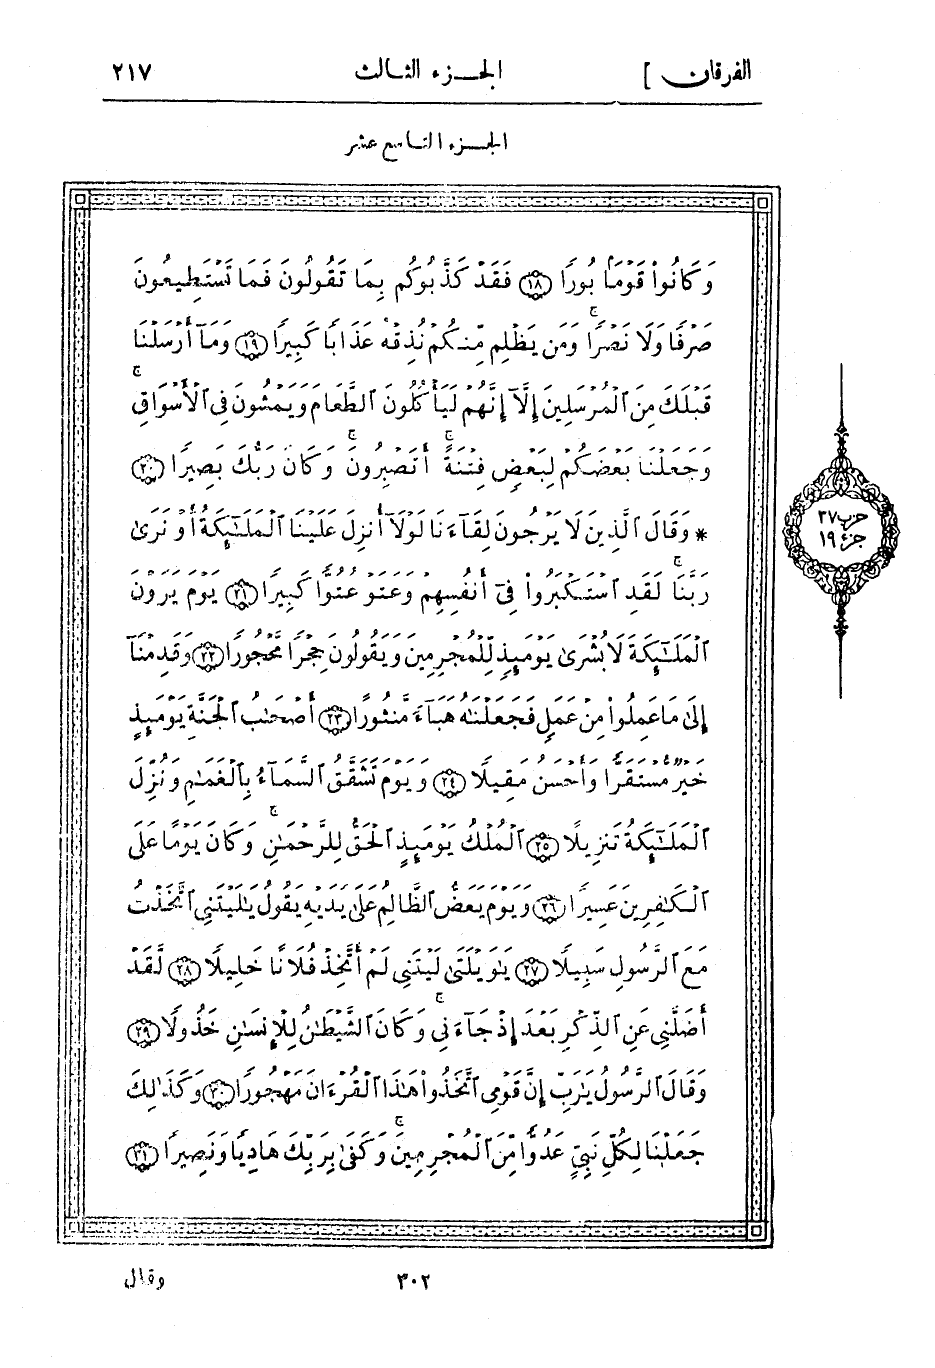 الفرقان ] الجزء الثالث ٢١٧
الجزء التاسع عشر
وَكَانُواْ قَوْمَۢا بُورًا ١٨ فَقَدْ كَذَّبُوكُم بِمَا تَقُولُونَ فَمَا تَسْتَطِيعُونَ
صَرْفًا وَلَا نَصْرًاۚ وَمَن يَظْلِم مِّنكُمْ نُذِقْهُ عَذَابًا كَبِيرًا ١٩ وَمَآ أَرْسَلْنَا
قَبْلَكَ مِنَ ٱلْمُرْسَلِينَ إِلَّآ إِنَّهُمْ لَيَأْكُلُونَ ٱلطَّعَامَ وَيَمْشُونَ فِى ٱلْأَسْوَاقِۚ
وَجَعَلْنَا بَعْضَكُمْ لِبَعْضٍ فِتْنَةًۚ أَتَصْبِرُونَۚ وَكَانَ رَبُّكَ بَصِيرًا ٢٠
* وَقَالَ ٱلَّذِينَ لَا يَرْجُونَ لِقَآءَنَا لَوْلَآ أُنزِلَ عَلَيْنَا ٱلْمَلَـٰٓئِكَةُ أَوْ نَرَىٰ
رَبَّنَاۚ لَقَدِ ٱسْتَكْبَرُواْ فِىٓ أَنفُسِهِمْ وَعَتَوْ عُتُوًّا كَبِيرًا ٢١ يَوْمَ يَرَوْنَ
ٱلْمَلَـٰٓئِكَةَ لَا بُشْرَىٰ يَوْمَئِذٍ لِّلْمُجْرِمِينَ وَيَقُولُونَ حِجْرًا مَّحْجُورًا ٢٢ وَقَدِمْنَآ
إِلَىٰ مَا عَمِلُواْ مِنْ عَمَلٍ فَجَعَلْنَـٰهُ هَبَآءً مَّنثُورًا ٢٣ أَصْحَـٰبُ ٱلْجَنَّةِ يَوْمَئِذٍ
خَيْرٌ مُّسْتَقَرًّا وَأَحْسَنُ مَقِيلًا ٢٤ وَيَوْمَ تَشَقَّقُ ٱلسَّمَآءُ بِٱلْغَمَـٰمِ وَنُزِّلَ
ٱلْمَلَـٰٓئِكَةُ تَنزِيلًا ٢٥ ٱلْمُلْكُ يَوْمَئِذٍ ٱلْحَقُّ لِلرَّحْمَـٰنِۚ وَكَانَ يَوْمًا عَلَى
ٱلْكَـٰفِرِينَ عَسِيرًا ٢٦ وَيَوْمَ يَعَضُّ ٱلظَّالِمُ عَلَىٰ يَدَيْهِ يَقُولُ يَـٰلَيْتَنِى ٱتَّخَذْتُ
مَعَ ٱلرَّسُولِ سَبِيلًا ٢٧ يَـٰوَيْلَتَىٰ لَيْتَنِى لَمْ أَتَّخِذْ فُلَانًا خَلِيلًا ٢٨ لَّقَدْ
أَضَلَّنِى عَنِ ٱلذِّكْرِ بَعْدَ إِذْ جَآءَنِىۚ وَكَانَ ٱلشَّيْطَـٰنُ لِلْإِنسَـٰنِ خَذُولًا ٢٩
وَقَالَ ٱلرَّسُولُ يَـٰرَبِّ إِنَّ قَوْمِى ٱتَّخَذُواْ هَـٰذَا ٱلْقُرْءَانَ مَهْجُورًا ٣٠ وَكَذَٰلِكَ
جَعَلْنَا لِكُلِّ نَبِىٍّ عَدُوًّا مِّنَ ٱلْمُجْرِمِينَۚ وَكَفَىٰ بِرَبِّكَ هَادِيًا وَنَصِيرًا ٣١
حزب ٣٧
جزء ١٩
٣٠٢
وقال